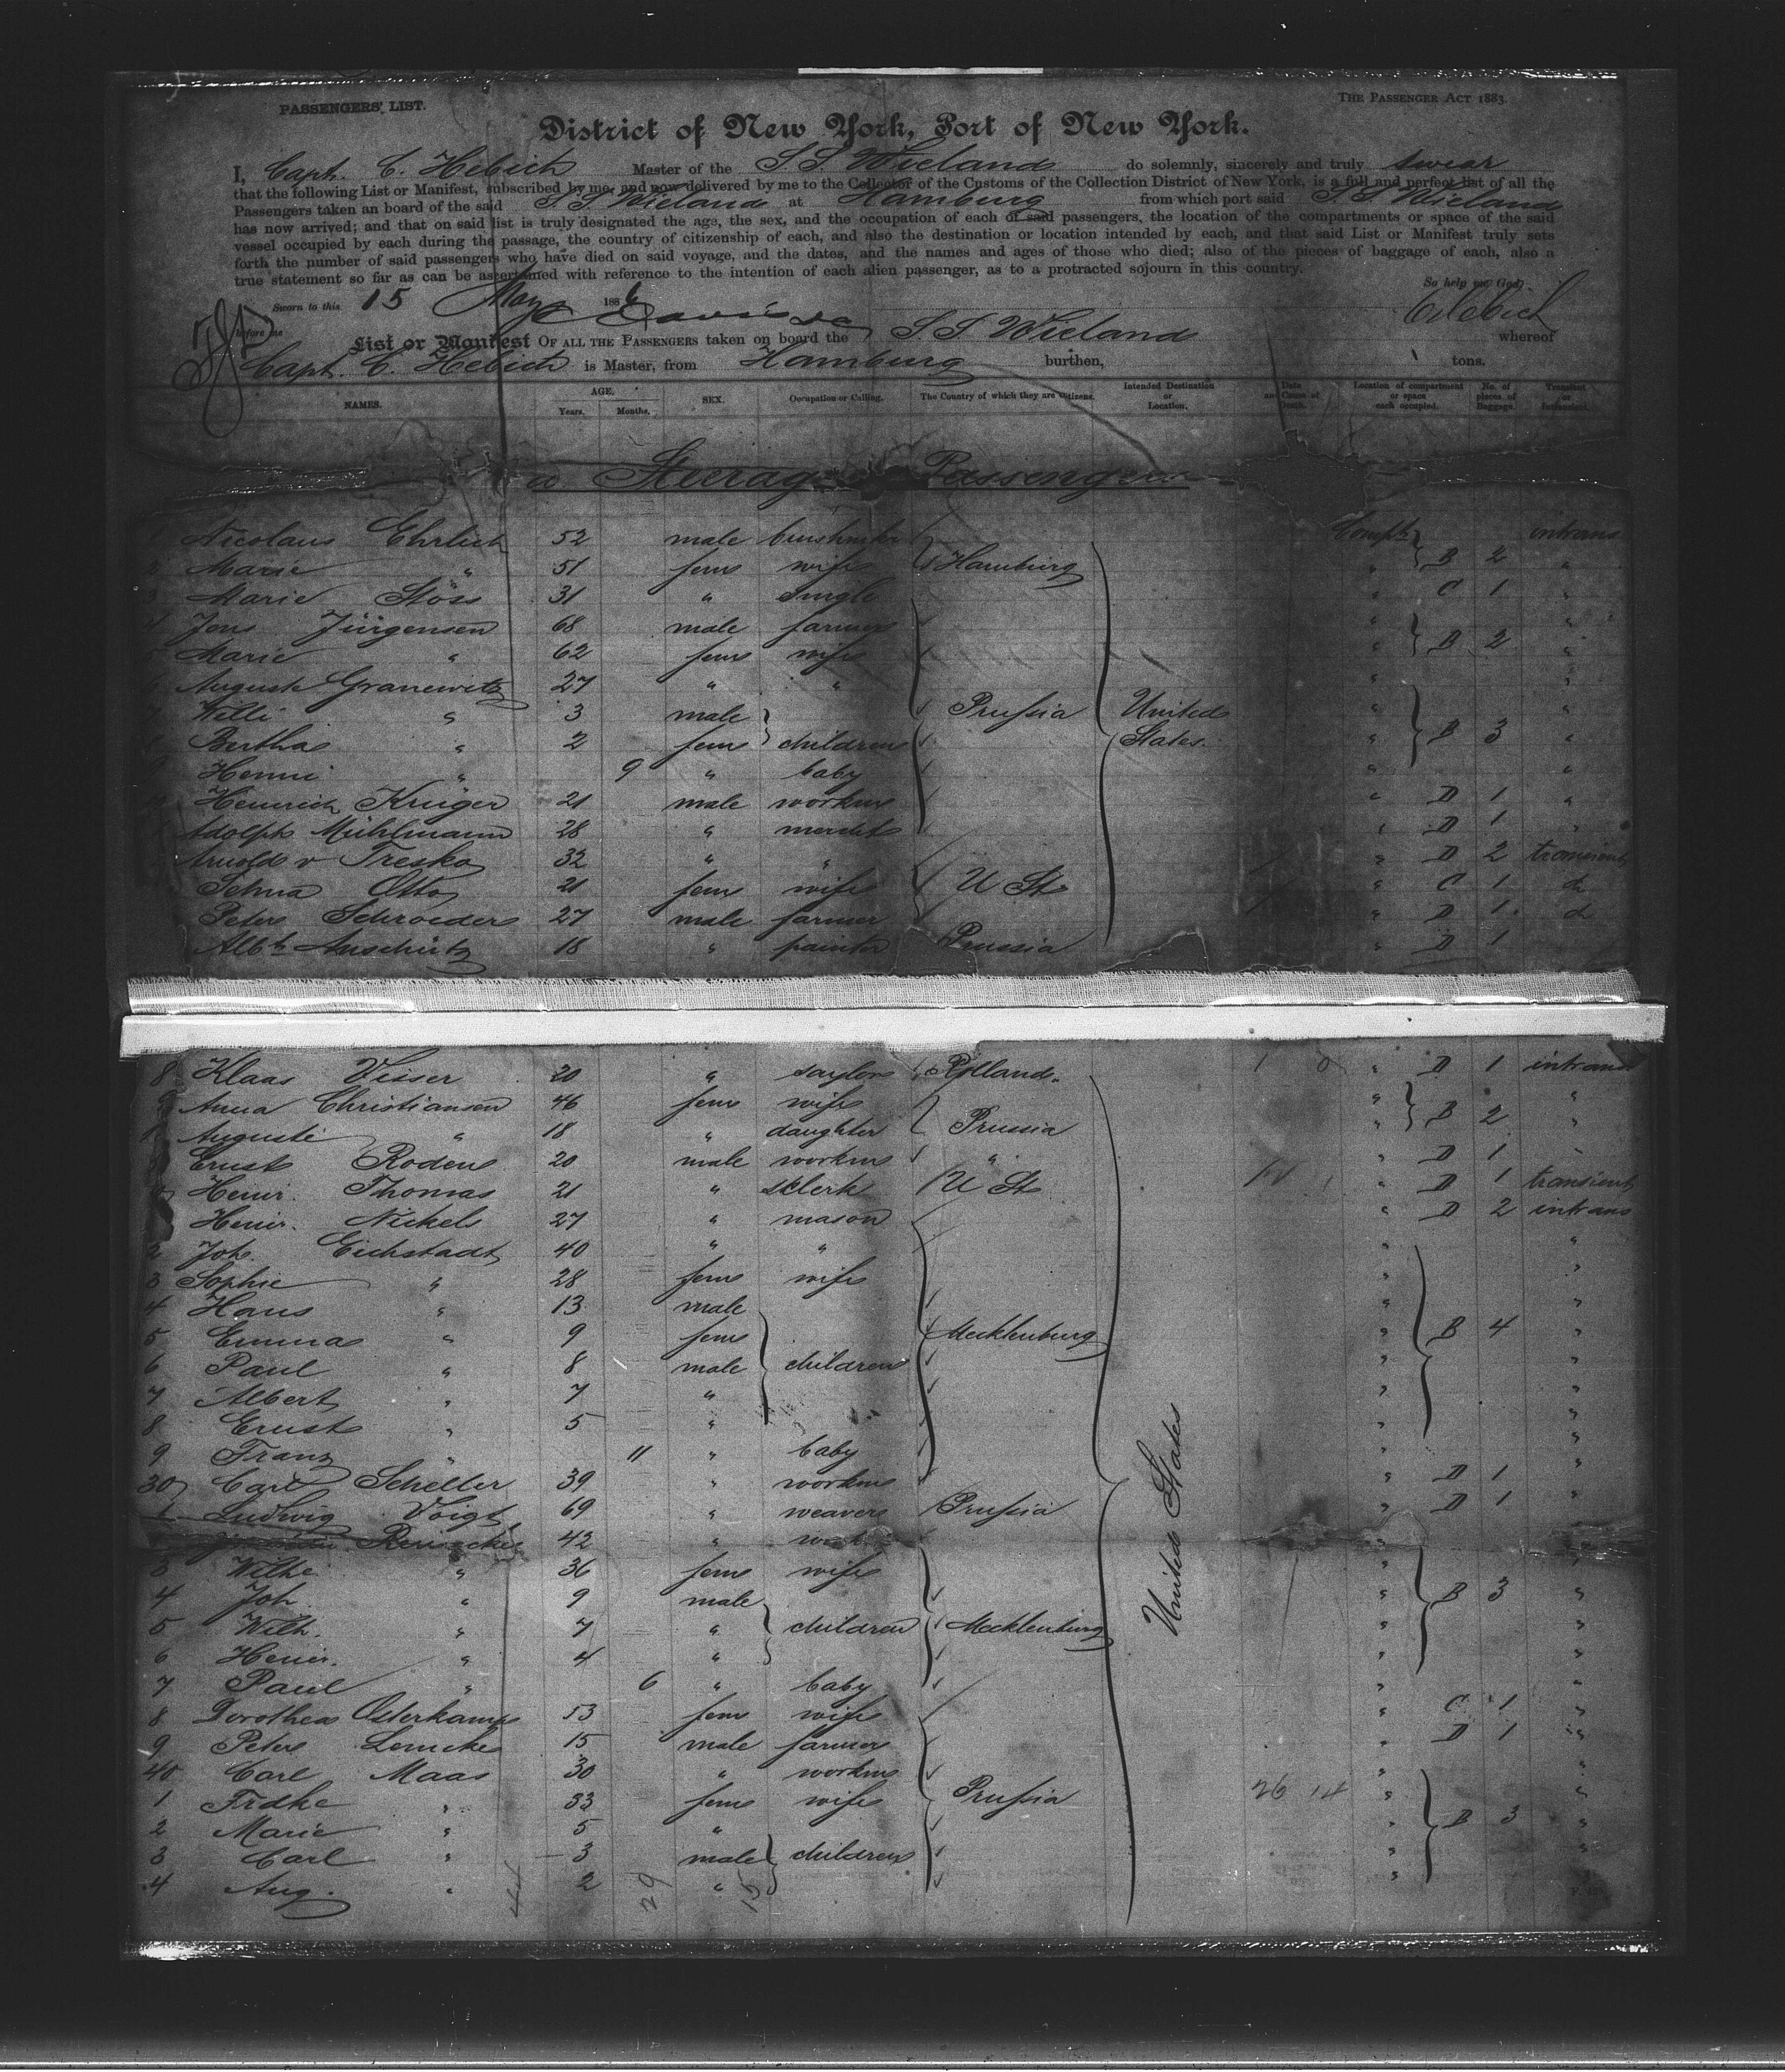 PASSENGERS' LIST.
THE PASSENGER ACT 1883.
District of New York, Port of New York.
I, Capt. C. Hebich Master of the S.S. Wieland do solemnly, sincerely and truly swear
that the following List or Manifest, subscribed by me, and now delivered by me to the Collector of the Customs of the Collection District of New York, is a full and perfect list of all the
Passengers taken an board of the said S S Wieland at Hamburg from which port said S. S. Wieland
has now arrived; and that on said list is truly designated the age, the sex, and the occupation of each of said passengers, the location of the compartments or space of the said
vessel occupied by each during the passage, the country of citizenship of each, and also the destination or location intended by each, and that said List or Manifest truly sets
forth the number of said passengers who have died on said voyage, and the dates, and the names and ages of those who died; also of the pieces of baggage of each, also a
true statement so far as can be ascertained with reference to the intention of each alien passenger, as to a protracted sojourn in this country.
So help me God.
Sworn to this 15 May 1886
CHebich
before me
List or Manifest OF ALL THE PASSENGERS taken on board the S. S. Wieland whereof
Capt. C. Hebich is Master, from Hamburg burthen, tons.
NAMES. AGE. Years. Months. SEX. Occupation or Calling. The Country of which they are Citizens. Intended Destination or Location. Date and Cause of Death. Location of compartment or space each occupied. No. of pieces of Baggage. Transient or Intransient.
Steerage Passengers
Nicolaus Ehrlich 52 male Compt. intrans
2 Marie " 51 fem wife Hamburg " B 2 "
3 Marie Stöss 31 " single " C 1 "
4 Jens Jürgensen 68 male farmer " "
5 Marie " 62 fem wife " B 2 "
Auguste Granewitz 27 " " " "
7 Willi " 3 male Prussia United " "
8 Bertha " 2 fem children States. " B 3 "
9 Henni " 9 " baby " "
Heinrich Krüger 21 male workm " D 1 "
Adolph Mühlmann 28 " mercht " D 1 "
Arnold v Tresko 32 " " " D 2 transient
Selma Otto 21 fem wife U St " C 1 do
Peter Schroeder 27 male farmer " D 1 do
Albt Anschütz 18 " painter Prussia " D 1
8 Klaas Visser 20 " saylor Holland. " D 1 intrans
9 Anna Christiansen 46 fem wife " "
Auguste " 18 " daughter Prussia " B 2 "
Ernst Roden 20 male workm " " D 1 "
Heinr. Thomas 21 " clerk U St " D 1 transient
Heinr. Nickels 27 " mason " D 2 intrans
2 Joh. Eichstadt 40 " " " "
3 Sophie " 28 fem wife " "
4 Hans " 13 male " "
5 Emma " 9 fem Mecklenburg " B 4 "
6 Paul " 8 male children " "
7 Albert " 7 " " "
8 Ernst " 5 " " "
9 Franz " 11 " baby " "
30 Carl Scheller 39 " workm " D 1 "
1 Ludwig Voigt 69 " weaver Prussia " D 1 "
Reinicke 42 "
3 Wilhe " 36 fem wife " "
4 Joh. " 9 male " B 3 "
5 Wilh. " 7 " children Mecklenburg " "
6 Heinr. " 4 " " "
7 Paul " 6 " baby " "
8 Dorothea Osterkamp 53 fem wife " C 1 "
9 Peter Lemcke 15 male farmer " D 1 "
40 Carl Maas 30 " workm " "
1 Frdke " 33 fem wife Prussia 26 14 " "
2 Marie " 5 " " B 3 "
3 Carl " 3 male children " "
4 Aug. " 2 " " "
United States
44 29 15